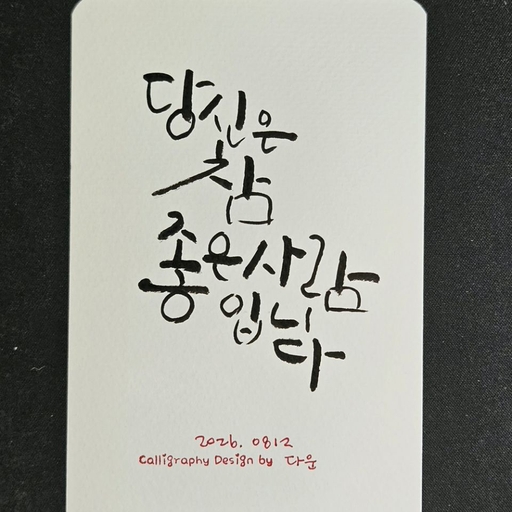 당신은
참
좋은사람
입니다
2026. 0812
Calligraphy Design by 다운